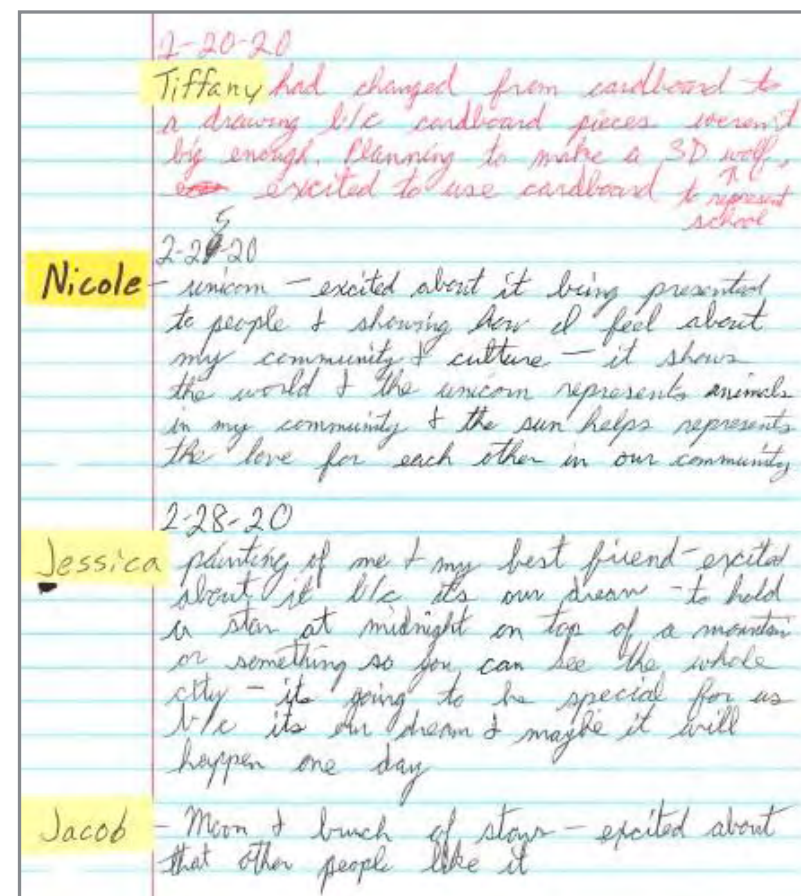 2-20-20
Tiffany had changed from cardboard to
a drawing b/c cardboard pieces weren't
big enough. Planning to make a 3D wolf,
excited to use cardboard to represent
school
2-25-20
Nicole - unicorn - excited about it being presented
to people & showing how I feel about
my community & culture - it shows
the world & the unicorn represents animals
in my community & the sun helps represents
the love for each other in our community
2-28-20
Jessica painting of me & my best friend - excited
about it b/c it's our dream - to hold
a star at midnight on top of a mountain
or something so you can see the whole
city - its going to be special for us
b/c its our dream & maybe it will
happen one day
Jacob - Moon & bunch of stars - excited about
that other people like it